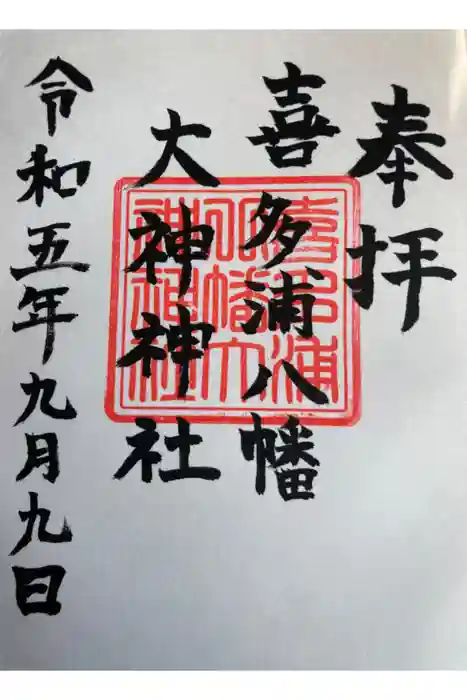 奉拝
喜多浦八幡
大神神社
令和五年九月九日
喜多浦
八幡大
神神社